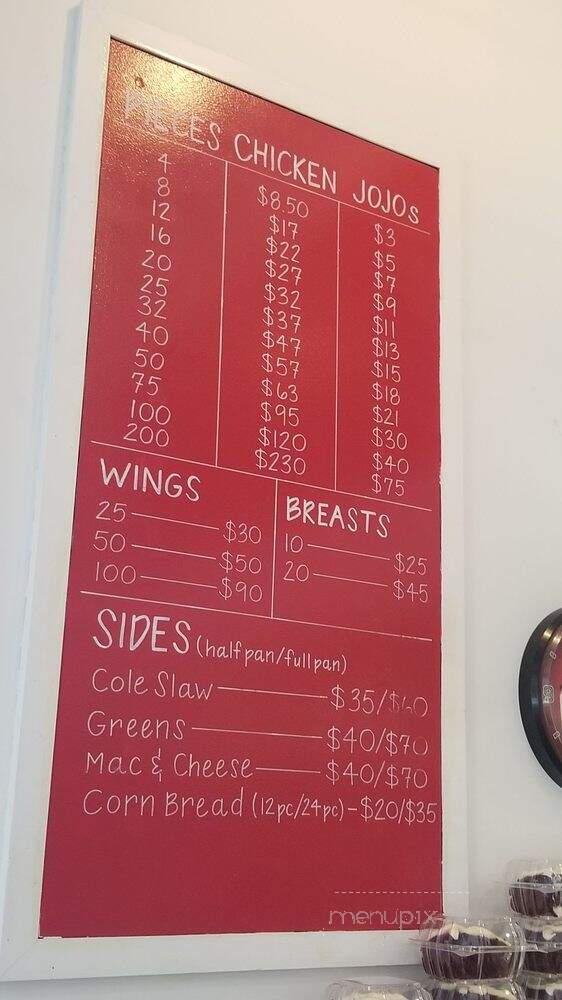 PIECES CHICKEN JOJOs
4 $8.50 $3
8 $17 $5
12 $22 $7
16 $27 $9
20 $32 $11
25 $37 $13
32 $47 $15
40 $57 $18
50 $63 $21
75 $95 $30
100 $120 $40
200 $230 $75
WINGS
25 $30
50 $50
100 $90
BREASTS
10 $25
20 $45
SIDES (half pan/full pan)
Cole Slaw $35/$60
Greens $40/$70
Mac & Cheese $40/$70
Corn Bread (12pc/24pc) - $20/$35
menupix